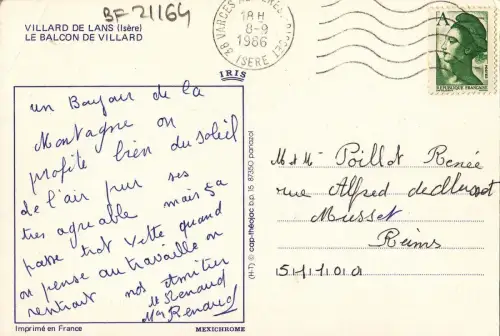 BF 21164
VILLARD DE LANS (Isère)
LE BALCON DE VILLARD
38 VARCES
18 H
8-9
1986
ISERE
A
REPUBLIQUE FRANÇAISE
IRIS
un Bonjour de la
Montagne on
profite bien du soleil
de l'air pur ses
très agréable mais sa
passe trot vitte quand
on pense au travaille on
rentrant nos amitier
M Renaud
Mm Renaud
(H-T) © cap-théojac b.p. 16 87350 panazol
M et Mm Poillot Renée
rue Alfred de Musset
Musset
Reims
51100
Imprimé en France
MEXICHROME